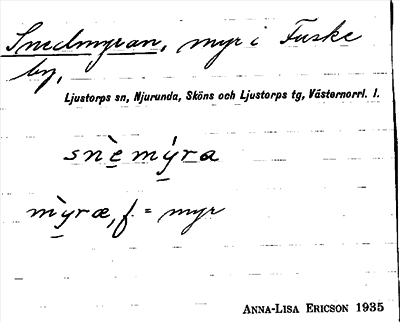 Snedmyran, myr i Fuske
by.
Ljustorps sn, Njurunda, Sköns och Ljustorps tg, Västernorrl. l.
snè̱ mý̱ra
mỳ̱ræ, f. = myr
ANNA-LISA ERICSON 1935